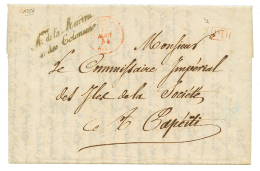 Mre de la Marine
et des Colonies
Monsieur
Le Commissaire Impérial
des Iles de la Société
A Papéiti